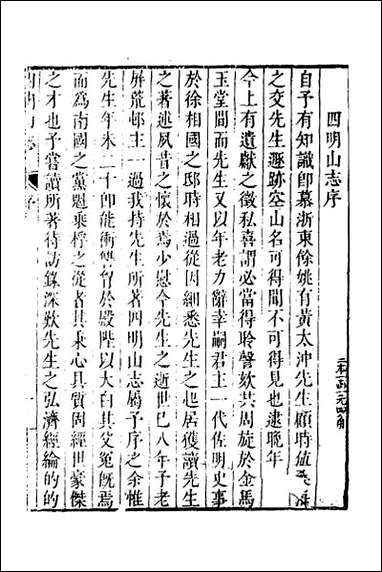 四明山志序
自予有知識卽慕浙東餘姚有黃太沖先生願時値
之交先生遯跡空山名可得聞不可得見也逮晚年
今上有遺獻之徵私喜謂必當得聆謦欬共周旋於金馬
玉堂間而先生又以年老力辭幸嗣君主一代佐明史事
於徐相國之邸時相過從因細悉先生之起居獲讀先生
之著述夙昔之懷於焉少慰今先生之逝世巳八年子老
屏荒邨主一過我持先生所著四明山志屬子序之余惟
先生年未二十卽能衝讐胷於殿陛以大白其父寃旣焉
而爲南國之黨魁乘桴之從者其求心具質固經世豪傑
之才也予嘗讀所著待訪錄深歎先生之弘濟經綸的的
四明山志
序
一